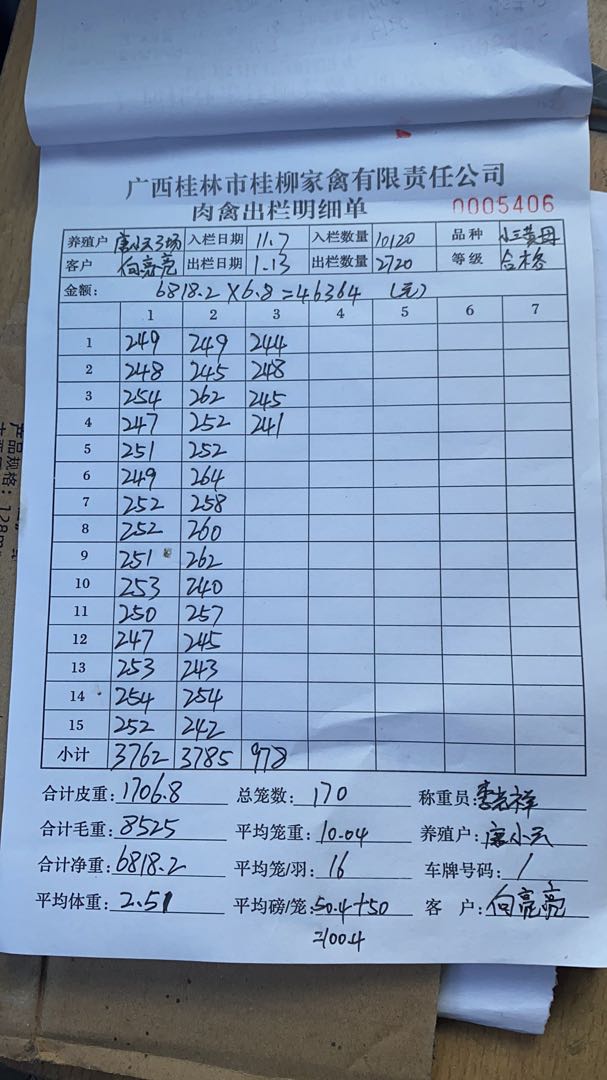 广西桂林市桂柳家禽有限责任公司
肉禽出栏明细单 0005406
养殖户 唐小云3场 入栏日期 11.7 入栏数量 10120 品种
客户 向亮亮 出栏日期 1.13 出栏数量 2720 等级 合格
金额: 6818.2×6.8=46364 (元)
1 2 3 4 5 6 7
1 249 249 244
2 248 245 248
3 254 262 245
4 247 252 241
5 251 252
6 249 264
7 252 258
8 252 260
9 251 262
10 253 240
11 250 257
12 247 245
13 253 243
14 254 254
15 252 242
小计 3762 3785 978
合计皮重: 1706.8 总笼数: 170 称重员: 李老祥
合计毛重: 8525 平均笼重: 10.04 养殖户: 唐小云
合计净重: 6818.2 平均笼/羽: 16 车牌号码: /
平均体重: 2.51 平均磅/笼: 50.4+50 客户: 向亮亮
=100.4
产品规格: 128m